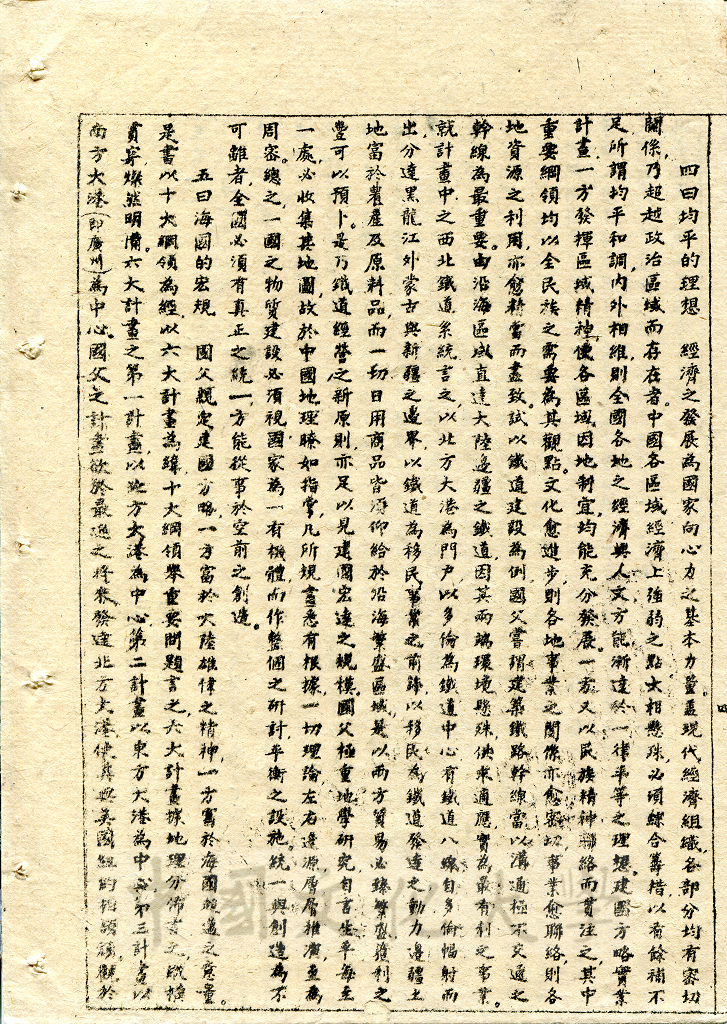 四曰均平的理想　經濟之發展為國家向心力之基本力量蓋現代經濟組織各部分均有密切
關係，乃超越政治區域而存在者。中國各區域經濟上強弱之點太相懸殊，必須綜合籌措以有餘補不
足，所謂均平和調，內外相維，則全國各地之經濟與人文方能漸達於一律平等之理想。建國方略實業
計畫，一方發揮區域精神，使各區域因地制宜，均能充分發展。一方又以民族精神聯絡而貫注之，其中
重要綱領均以全民族之需要為其觀點。文化愈進步，則各地事業之關係亦愈密切，事業愈聯絡，則各
地資源之利用亦愈精當而盡致。試以鐵道建設為例，國父嘗謂建築鐵路幹線當以溝通極不交通之
幹線為最重要。由沿海區域直達大陸邊疆之鐵道，因其兩端環境懸殊，供求適應，實為最有利之事業。
就計畫中之西北鐵道系統言之，以北方大港為門户，以多倫為鐵道中心，有鐵道八線自多倫幅射而
出，分達黑龍江外蒙古與新疆之邊界，以鐵道為移民事業之前鋒，以移民為鐵道發達之動力，邊疆土
地富於農產及原料品，而一切日用商品皆須仰給於沿海繁盛區域，是以兩方貿易必臻繁盛，獲利之
豐可以預卜。是乃鐵道經營之新原則，亦足以見建國宏遠之規模。國父極重地學研究，自言生平每至
一處，必收集其地圖，故於中國地理瞭如指掌，凡所規畫悉有根據，一切理論左右逢源，層層推演，至為
周密。總之，一國之物質建設必須視國家為一有機體，而作整個之研討，平衡之設施。統一與創造為不
可離者，全國必須有真正之統一，方能從事於空前之創造。
五曰海國的宏規　國父親定建國方略，一方富於大陸雄偉之精神，一方富於海國超邁之意量。
是書以十大綱領為經，以六大計畫為緯，十大綱領舉重要問題言之，六大計畫據地理分佈言之，縱橫
貫穿，燦然明備。六大計畫之第一計畫，以北方大港為中心，第二計畫以東方大港為中心，第三計畫以
南方大港（即廣州）為中心。國父之計畫欲於最近之將來發達北方大港，使其與美國紐約相頡頏，
四